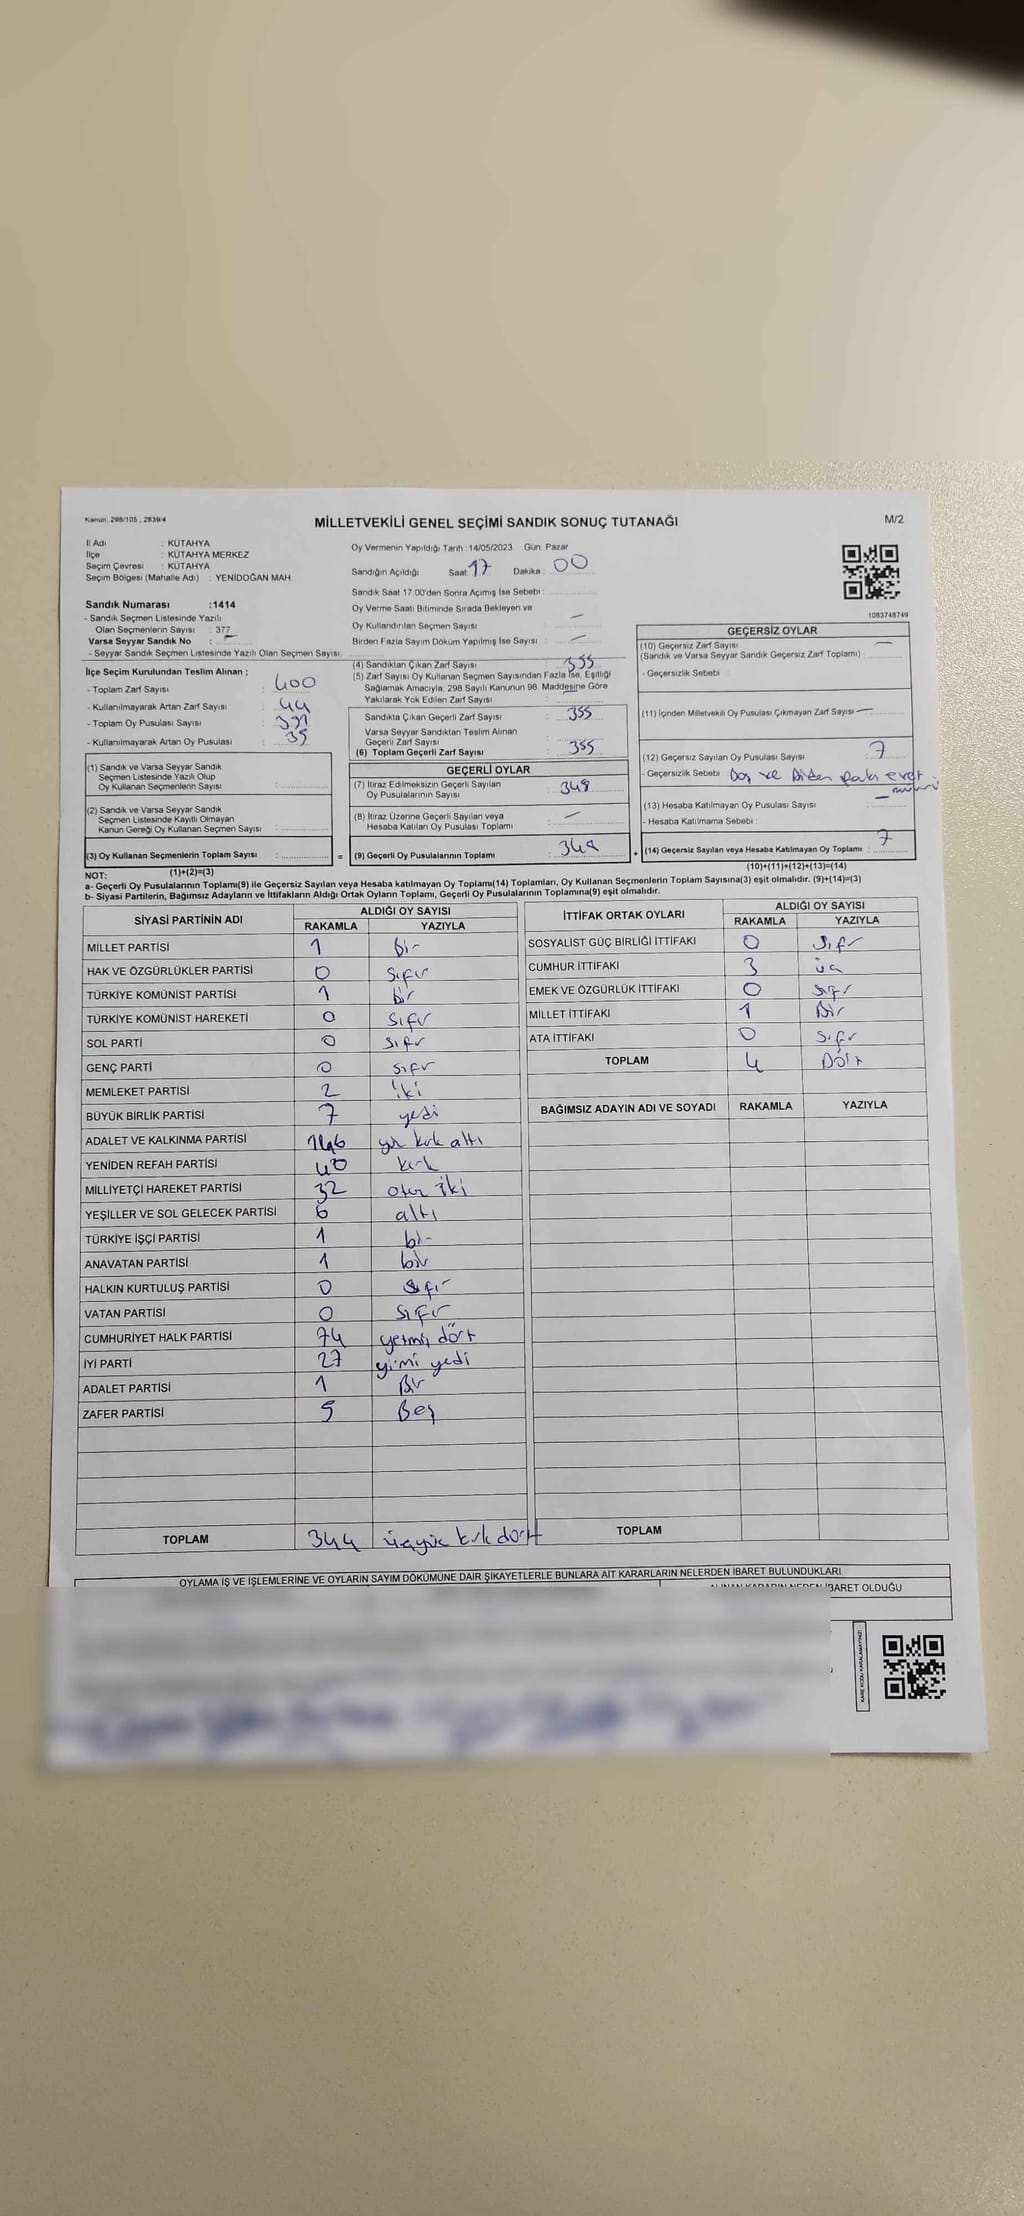 Kanun: 298/105 , 2839/4
MİLLETVEKİLİ GENEL SEÇİMİ SANDIK SONUÇ TUTANAĞI
M/2
İl Adı : KÜTAHYA
İlçe : KÜTAHYA MERKEZ
Seçim Çevresi : KÜTAHYA
Seçim Bölgesi (Mahalle Adı) : YENİDOĞAN MAH.
Sandık Numarası :1414
- Sandık Seçmen Listesinde Yazılı
Olan Seçmenlerin Sayısı : 377
Varsa Seyyar Sandık No :
- Seyyar Sandık Seçmen Listesinde Yazılı Olan Seçmen Sayısı:
İlçe Seçim Kurulundan Teslim Alınan ;
- Toplam Zarf Sayısı : 400
- Kullanılmayarak Artan Zarf Sayısı : 44
- Toplam Oy Pusulası Sayısı : 391
- Kullanılmayarak Artan Oy Pusulası : 35
(1) Sandık ve Varsa Seyyar Sandık
Seçmen Listesinde Yazılı Olup
Oy Kullanan Seçmenlerin Sayısı :
(2) Sandık ve Varsa Seyyar Sandık
Seçmen Listesinde Kayıtlı Olmayan
Kanun Gereği Oy Kullanan Seçmen Sayısı :
(3) Oy Kullanan Seçmenlerin Toplam Sayısı : =
(1)+(2)=(3)
Oy Vermenin Yapıldığı Tarih : 14/05/2023 Gün: Pazar
Sandığın Açıldığı Saat: 17 Dakika : 00
Sandık Saat 17:00'den Sonra Açılmış İse Sebebi :
Oy Verme Saati Bitiminde Sırada Bekleyen ve
Oy Kullandırılan Seçmen Sayısı : —
Birden Fazla Sayım Döküm Yapılmış İse Sayısı : —
(4) Sandıktan Çıkan Zarf Sayısı : 355
(5) Zarf Sayısı Oy Kullanan Seçmen Sayısından Fazla İse, Eşitliği
Sağlamak Amacıyla, 298 Sayılı Kanunun 98. Maddesine Göre
Yakılarak Yok Edilen Zarf Sayısı : —
Sandıkta Çıkan Geçerli Zarf Sayısı : 355
Varsa Seyyar Sandıktan Teslim Alınan
Geçerli Zarf Sayısı :
(6) Toplam Geçerli Zarf Sayısı : 355
GEÇERLİ OYLAR
(7) İtiraz Edilmeksizin Geçerli Sayılan
Oy Pusulalarının Sayısı : 348
(8) İtiraz Üzerine Geçerli Sayılan veya
Hesaba Katılan Oy Pusulası Toplamı : —
(9) Geçerli Oy Pusulalarının Toplamı : 348 +
1083748749
GEÇERSİZ OYLAR
(10) Geçersiz Zarf Sayısı —
(Sandık ve Varsa Seyyar Sandık Geçersiz Zarf Toplamı) :
- Geçersizlik Sebebi :
(11) İçinden Milletvekili Oy Pusulası Çıkmayan Zarf Sayısı —
(12) Geçersiz Sayılan Oy Pusulası Sayısı : 7
- Geçersizlik Sebebi : Boş ve birden fazla evet
(13) Hesaba Katılmayan Oy Pusulası Sayısı : —
- Hesaba Katılmama Sebebi :
(14) Geçersiz Sayılan veya Hesaba Katılmayan Oy Toplamı : 7
(10)+(11)+(12)+(13)=(14)
NOT:
a- Geçerli Oy Pusulalarının Toplamı(9) ile Geçersiz Sayılan veya Hesaba katılmayan Oy Toplamı(14) Toplamları, Oy Kullanan Seçmenlerin Toplam Sayısına(3) eşit olmalıdır. (9)+(14)=(3)
b- Siyasi Partilerin, Bağımsız Adayların ve İttifakların Aldığı Ortak Oyların Toplamı, Geçerli Oy Pusulalarının Toplamına(9) eşit olmalıdır.
SİYASİ PARTİNİN ADI ALDIĞI OY SAYISI
RAKAMLA YAZIYLA
MİLLET PARTİSİ 1 Bir
HAK VE ÖZGÜRLÜKLER PARTİSİ 0 Sıfır
TÜRKİYE KOMÜNİST PARTİSİ 1 Bir
TÜRKİYE KOMÜNİST HAREKETİ 0 Sıfır
SOL PARTİ 0 Sıfır
GENÇ PARTİ 0 sıfır
MEMLEKET PARTİSİ 2 iki
BÜYÜK BİRLİK PARTİSİ 7 yedi
ADALET VE KALKINMA PARTİSİ 146 yüz kırk altı
YENİDEN REFAH PARTİSİ 40 kırk
MİLLİYETÇİ HAREKET PARTİSİ 32 otuz iki
YEŞİLLER VE SOL GELECEK PARTİSİ 6 altı
TÜRKİYE İŞÇİ PARTİSİ 1 bir
ANAVATAN PARTİSİ 1 bir
HALKIN KURTULUŞ PARTİSİ 0 Sıfır
VATAN PARTİSİ 0 Sıfır
CUMHURİYET HALK PARTİSİ 74 yetmiş dört
İYİ PARTİ 27 yirmi yedi
ADALET PARTİSİ 1 Bir
ZAFER PARTİSİ 5 Beş
TOPLAM 344 üçyüz kırk dört
İTTİFAK ORTAK OYLARI ALDIĞI OY SAYISI
RAKAMLA YAZIYLA
SOSYALİST GÜÇ BİRLİĞİ İTTİFAKI 0 Sıfır
CUMHUR İTTİFAKI 3 üç
EMEK VE ÖZGÜRLÜK İTTİFAKI 0 Sıfır
MİLLET İTTİFAKI 1 Bir
ATA İTTİFAKI 0 Sıfır
TOPLAM 4 Dört
BAĞIMSIZ ADAYIN ADI VE SOYADI RAKAMLA YAZIYLA
TOPLAM
OYLAMA İŞ VE İŞLEMLERİNE VE OYLARIN SAYIM DÖKÜMÜNE DAİR ŞİKAYETLERLE BUNLARA AİT KARARLARIN NELERDEN İBARET BULUNDUKLARI
ALINAN KARARIN NEDEN İBARET OLDUĞU
KARE KODU KARALAMAYINIZ!